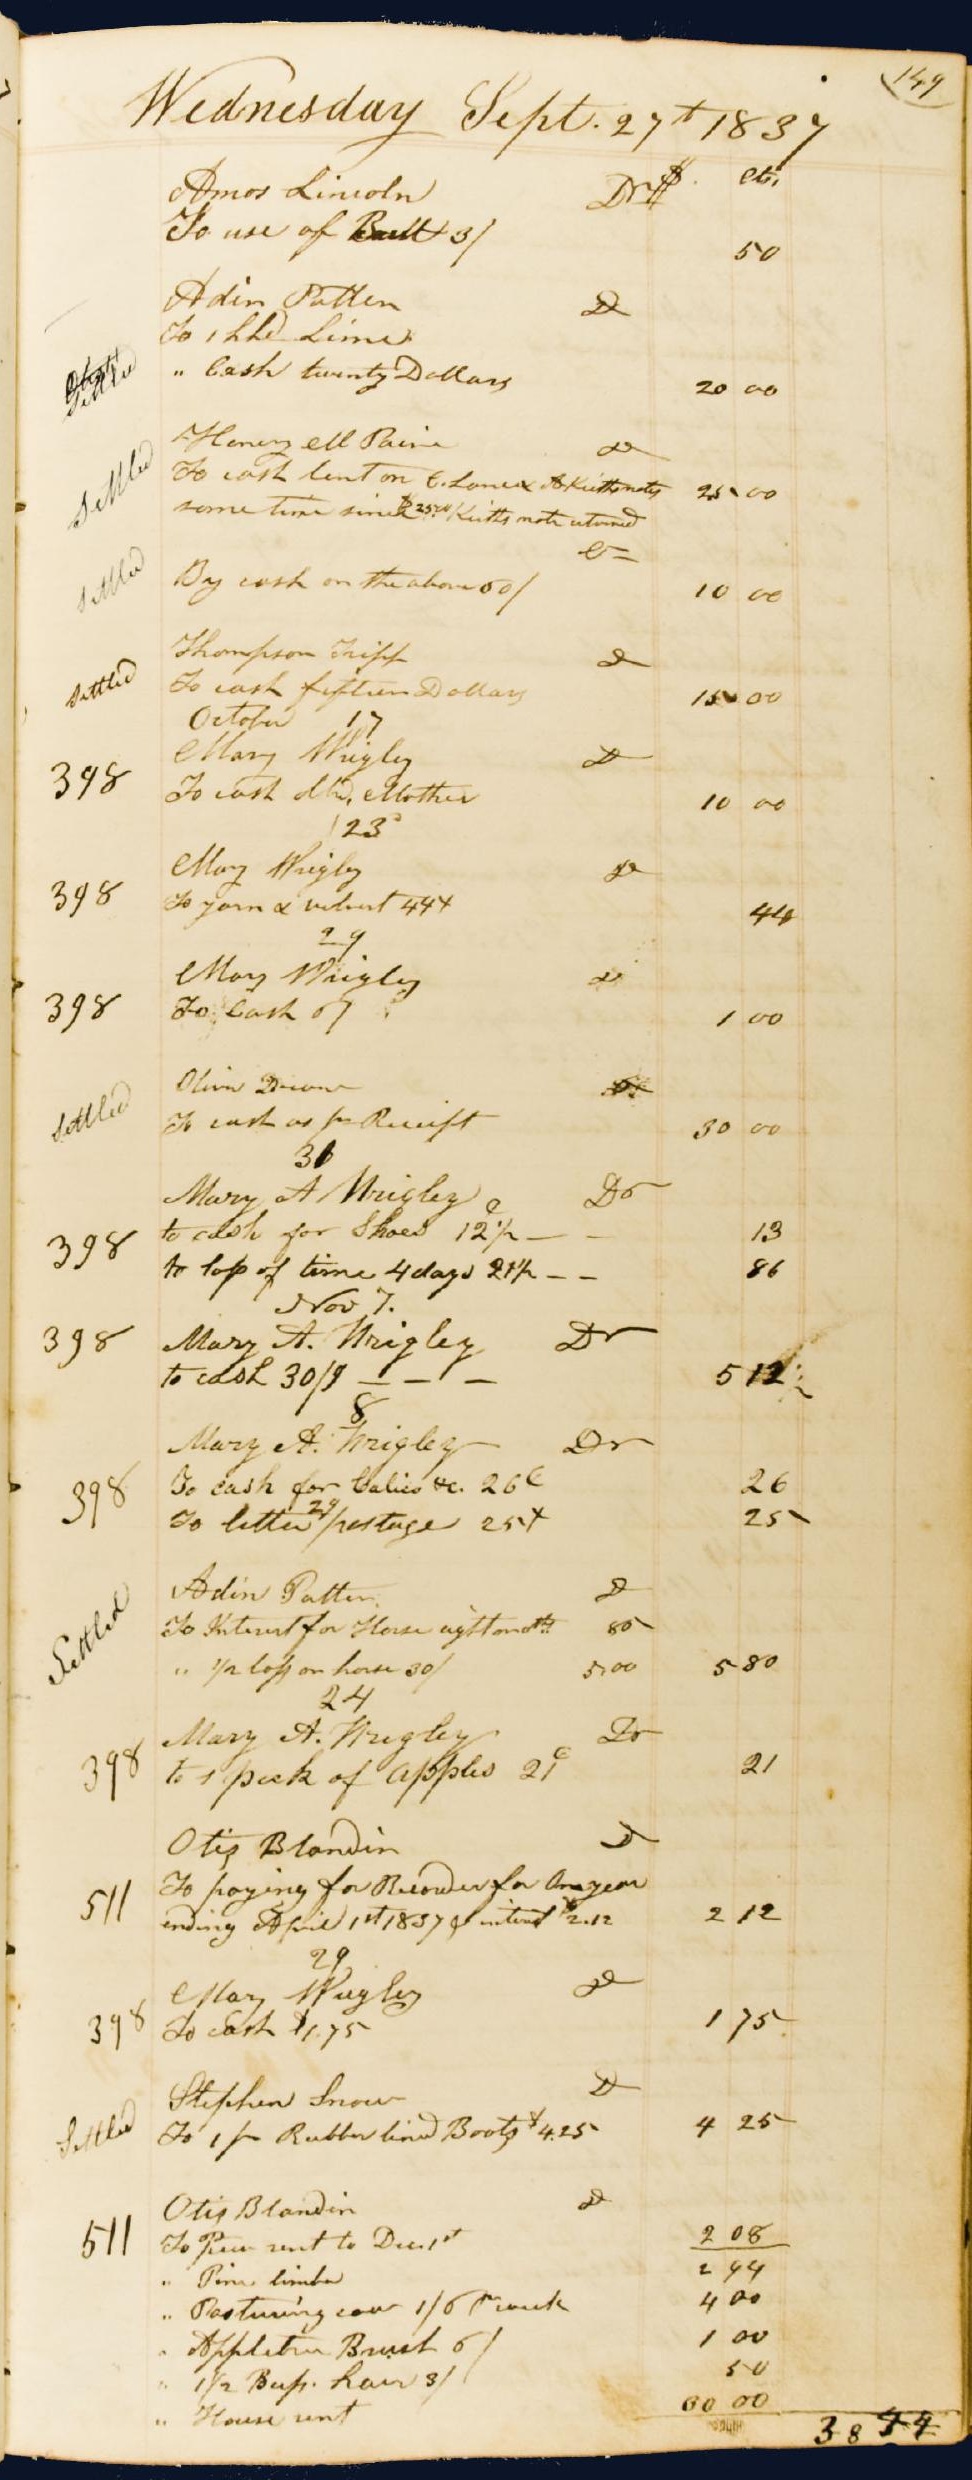 149
Wednesday Sept. 27t 1837
Amos Lincoln Dr $ cts.
To use of 3/ 50
Adin Patten Dr
To 1 hhd Lime
Settled " Cash twenty Dollars 20 00
Henry M Paine Dr
Settled To cash lent on C. Lane & A Kieths note 25 00
some time since $25.00 Kieths note returned
Cr
Settled By cash on the above 60/ 10 00
Thompson Tripp Dr
Settled To cash fifteen Dollars 15 00
October 17
398 Mary Wrigley Dr
To cash dld. Mother 10 00
23
Mary Wrigley Dr
398 To yarn & velvet 44 44
29
Mary Wrigley Dr
398 To Cash 6/ 1 00
Oliver Dr
Settled To cash as pr Receipt 30 00
31
Mary A Wrigley Dr
398 to cash for Shoes 12½ c 13
to loss of time 4 days 21½ 86
Nov 7.
398 Mary A. Wrigley Dr
to cash 30/9 5 12
8
Mary A. Wrigley Dr
398 To cash for Calico &c. 26c 26
To letter postage 25 25
Adin Patten Dr
Settled To Interest for Horse eight months 80
" 1/2 loss on horse 30/ 5.00 5 80
24
Mary A. Wrigley Dr
398 to 1 peck of apples 21c 21
Otis Blandin Dr
511 To paying for Recorder for One year
ending April 1st 1837 & interest $2.12 2 12
29
Mary Wrigley Dr
398 To cash $1.75 1 75
Stephen Snow Dr
Settled To 1 pr Rubber lined Boots $4.25 4 25
Otis Blandin Dr
511 To Pew rent to Dec. 1st 2 08
" Pine timber 2 44
" Pasturing cow 1/6 pr week 4 00
" Appletree Brush 6/ 1 00
" 1/2 Bus. hair 3/ 50
" House rent 30 00
38